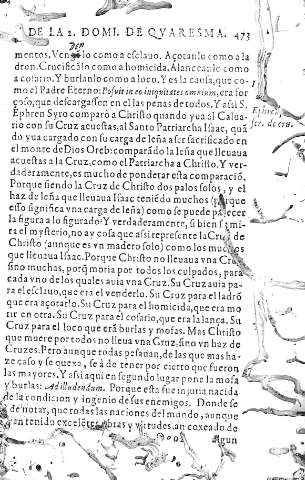 DE LA 2. DOMI. DE QVARESMA. 473
den
mentos. Ven lo como a esclauo. Açotanlo como a la
dron. Crucificãlo como a homicida. Alanceanlo como
a cosario. Y burlanlo como a loco. Y es la causa, que co-
mo el Padre Eterno: Posuit in eo iniquitates omnium, era for
çoso, que descargassen en el las penas de todos. Y assi S.
Ephren Syro comparò a Christo quando yua al Calua-
rio con su Cruz acuestas, al Santo Patriarcha Isaac, quã
do yua cargado con su carga de leña a ser sacrificado en
el monte de Dios Oreb: comparãdo la leña que lleuaua
acuestas a la Cruz, como el Patriarcha a Christo. Y ver-
daderamente, es mucho de ponderar esta comparació.
Porque siendo la Cruz de Christo dos palos solos, y el
haz de leña que lleuaua Isaac teniẽdo muchos (porque
esso significa vna carga de leña) como se puede parecer
la figura a lo figurado? Y verdaderamente, si bien se mi-
ra el mysterio, no ay cosa que assi represente la Cruz de
Christo (aunque es vn madero solo) como los muchos
que lleuaua Isaac. Porque Christo no lleuaua vna Cruz,
sino muchas, porq̃ moria por todos los culpados, para
cada vno de los quales auia vna Cruz. Su Cruz auia pa-
ra el esclauo, que era el venderlo. Su Cruz para el ladrõ
que era açotarlo. Su Cruz para el homicida, que era mo
rir en otra. Su Cruz para el cosario, que era la lança. Su
Cruz para el loco que erã burlas y mofas. Mas Christo
que muere por todos no lleua vna Cruz, sino vn haz de
Cruzes. Pero aunque todas pesauan, de las que mas ha-
ze caso y se quexa, se à de tener por cierto que fueron
las mayores. Y assi aqui en segundo lugar pone la mofa
y burlas: Ad illudendum. Porque esta fue injuria nacida
de la condicion y ingenio de sus enemigos. Donde se à
de notar, que todas las naciones del mundo, aunque
ayan tenido excelẽtes obras y virtudes, an coxeado de
algun
Ephren
ser. de cru.